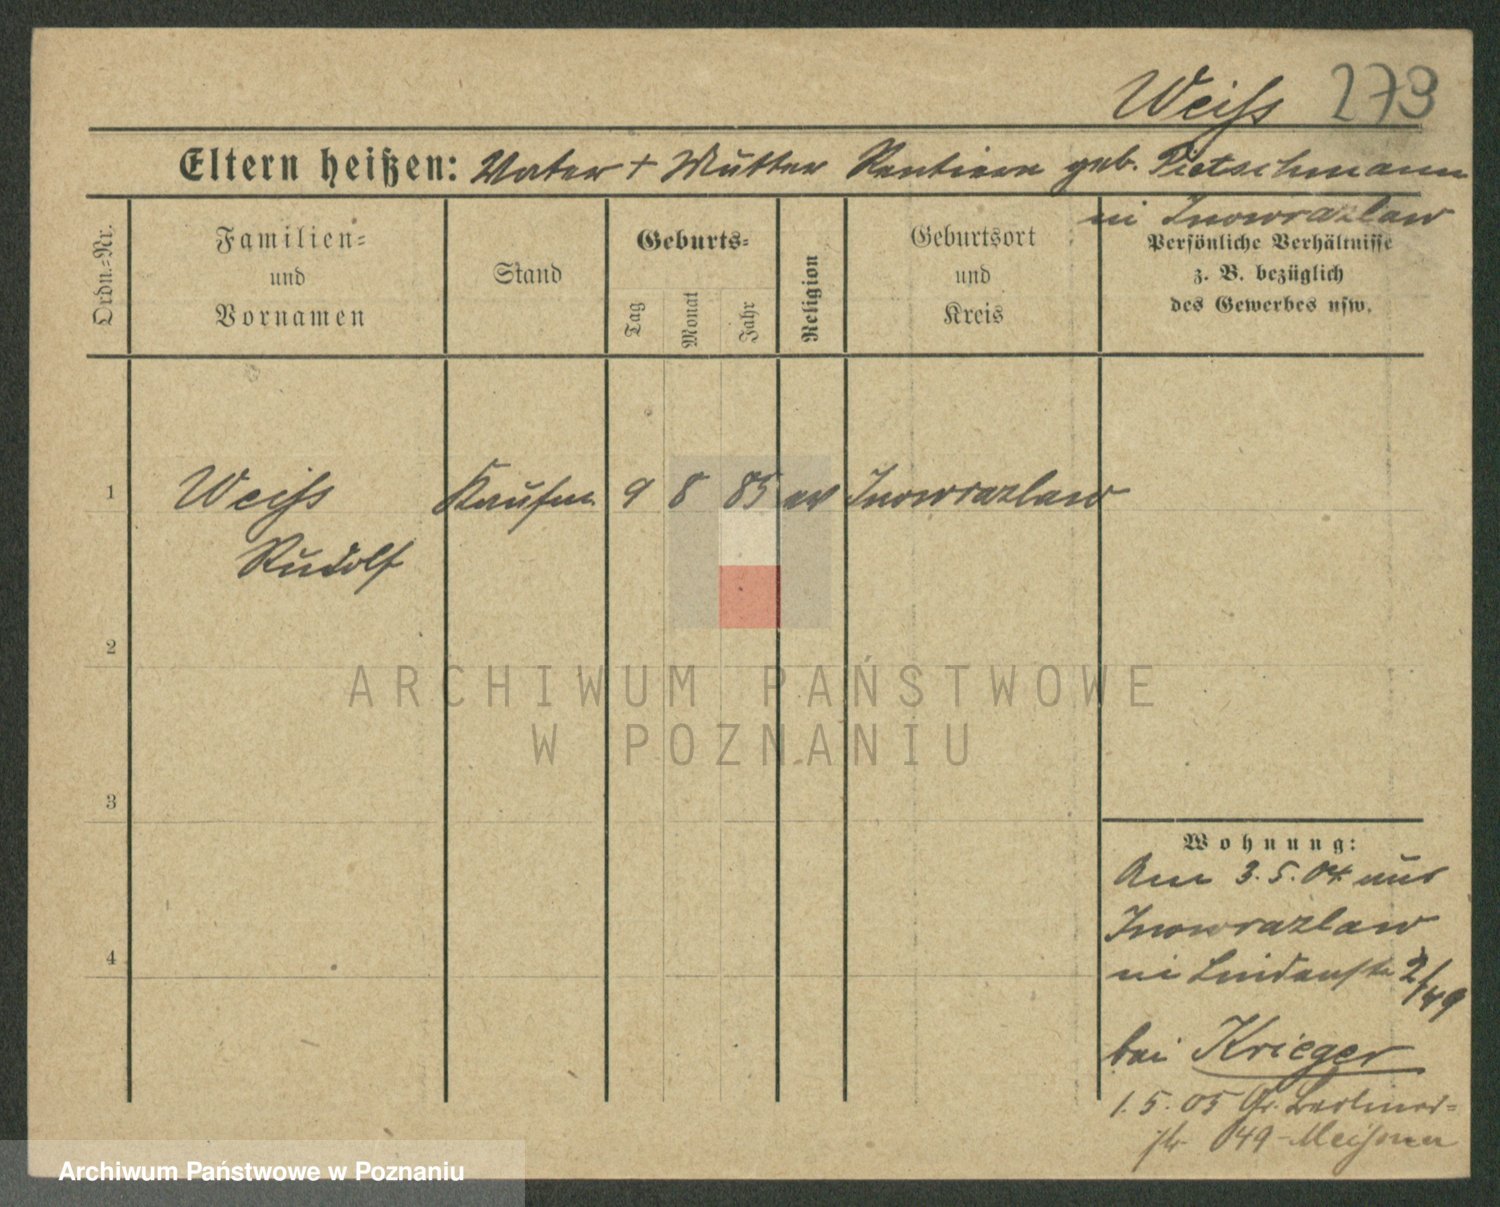 Weiſs 273
Eltern heißen: Vater + Mutter Rentiere geb. Pietschmann
in Inowrazlaw
Ordn.-Nr.
Familien-
und
Vornamen
Stand
Geburts-
Tag
Monat
Jahr
Religion
Geburtsort
und
Kreis
Persönliche Verhältnisse
z. B. bezüglich
des Gewerbes usw.
1 Weiſs Kaufm 9 8 85 ev Inowrazlaw
Rudolf
2
ARCHIWUM PAŃSTWOWE
W POZNANIU
3
Wohnung:
Am 3.5.04 aus
Inowrazlaw
4
in Lindenstr 2/
bei Krieger
1.5.05 Gr. Berliner-
str 49
Archiwum Państwowe w Poznaniu